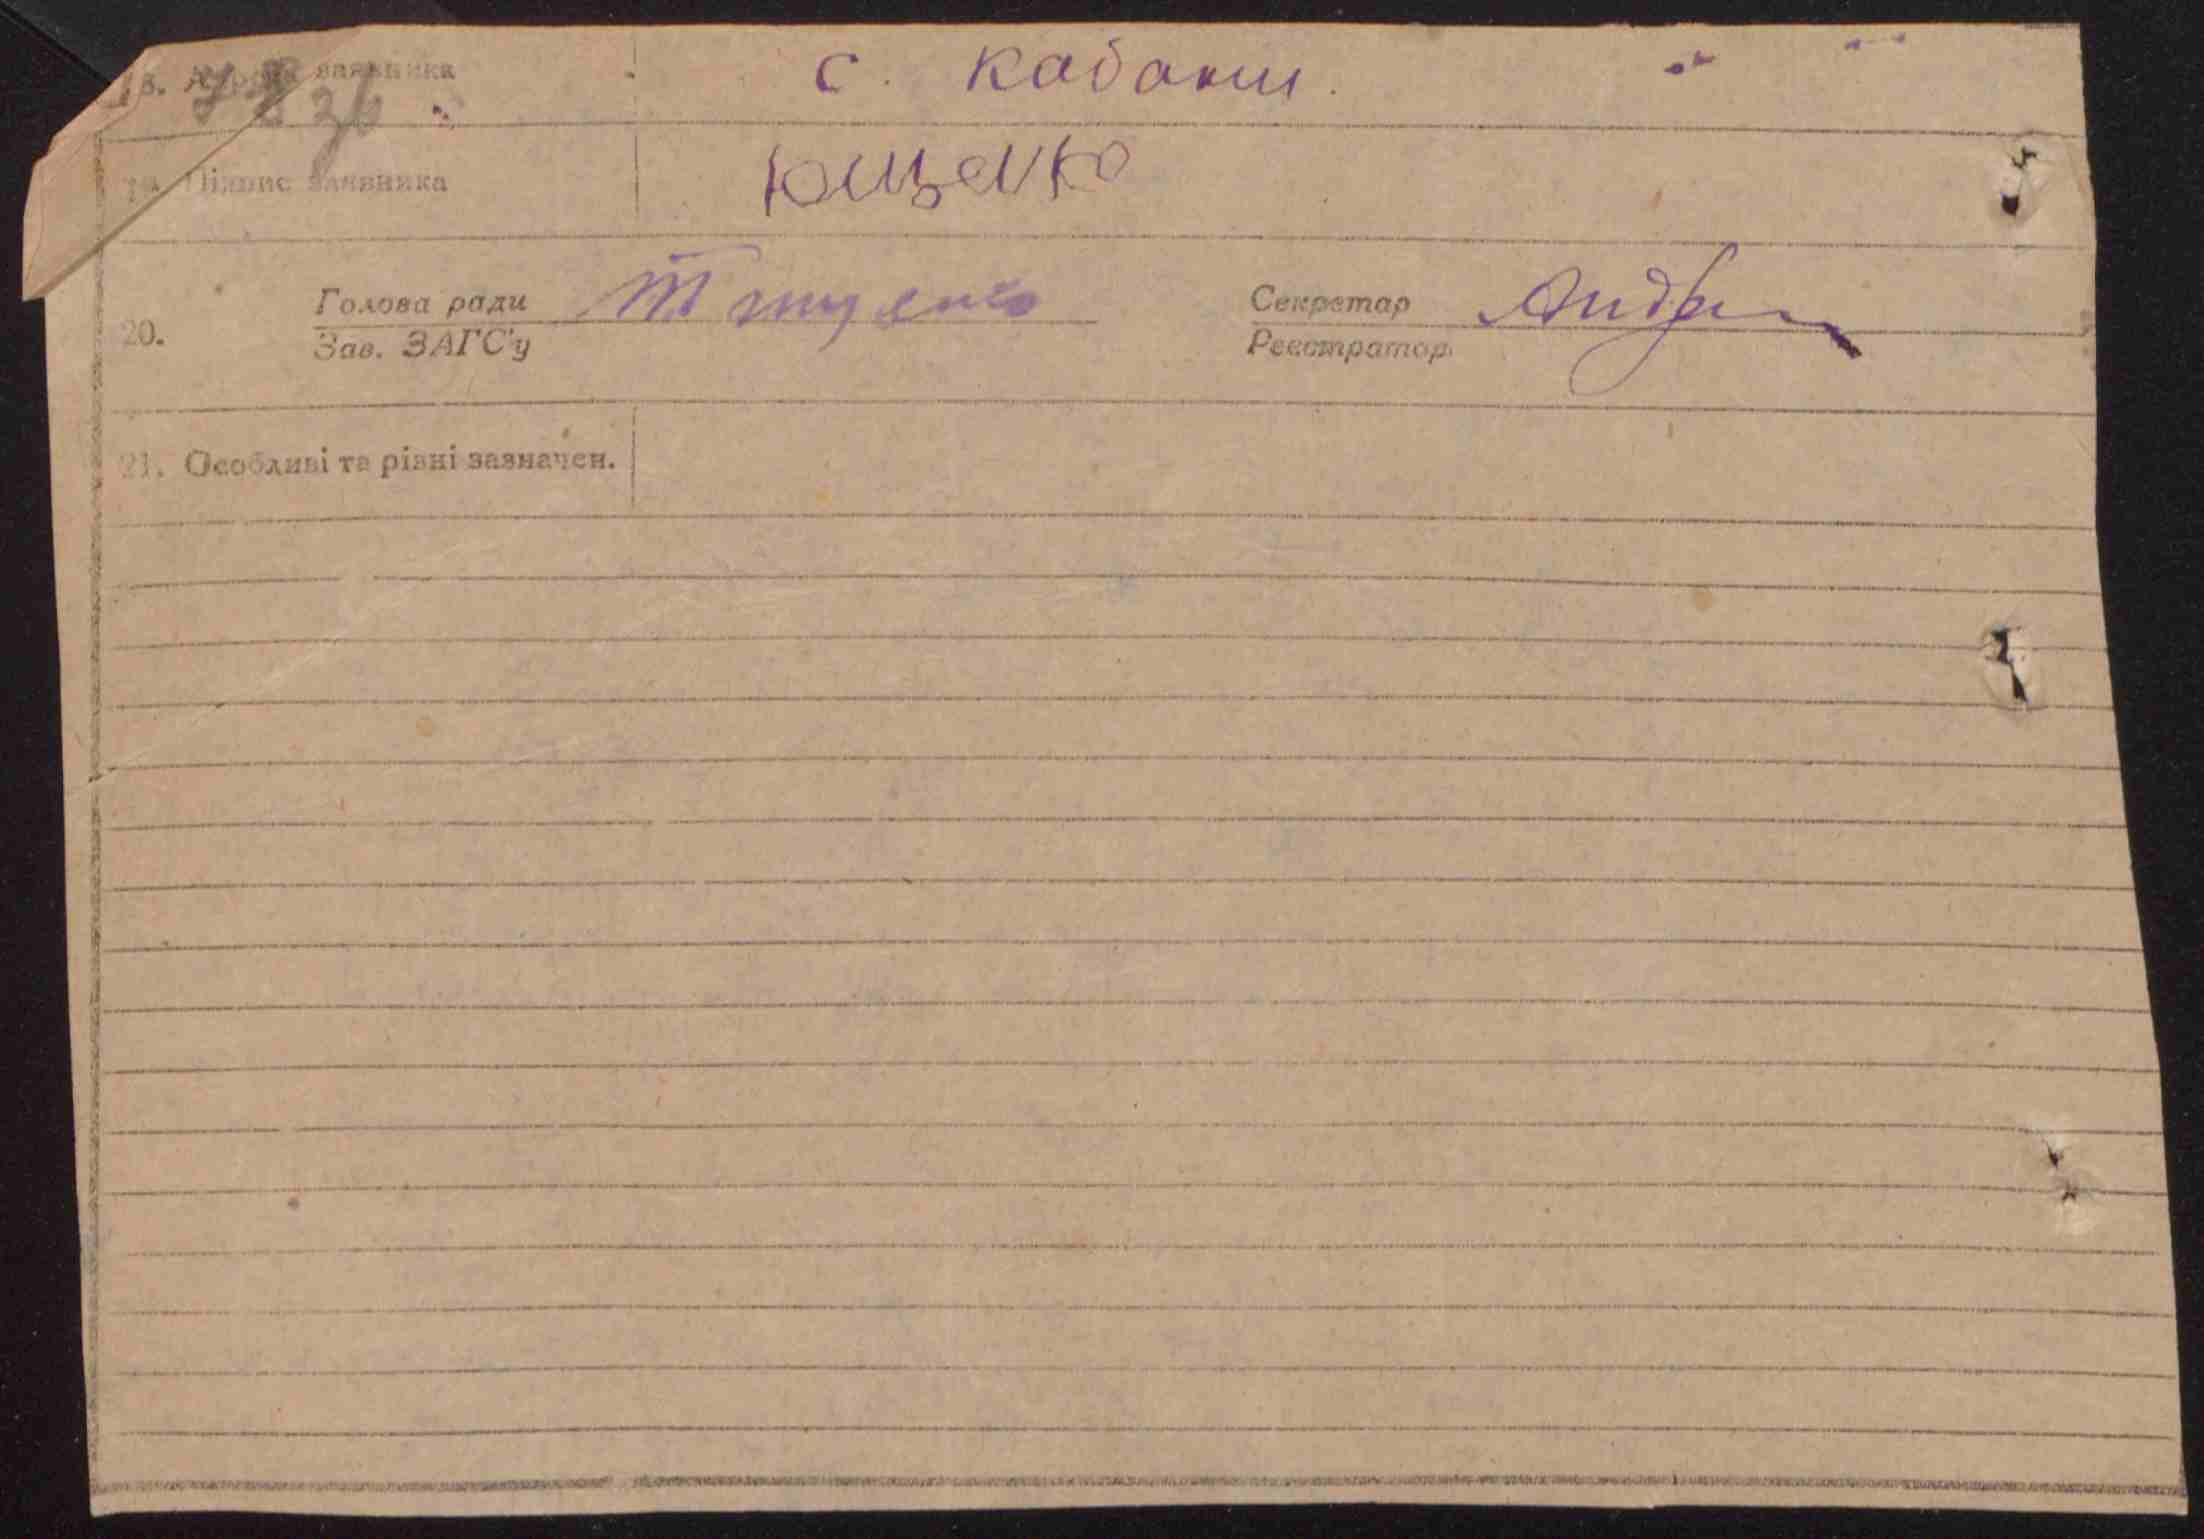 18. Адреса заявника с. Кабани.
19. Підпис заявника Ющенко
Голова ради Секретар
20.
Зав. ЗАГС'у Реєстратор
21. Особливі та різні зазначен.